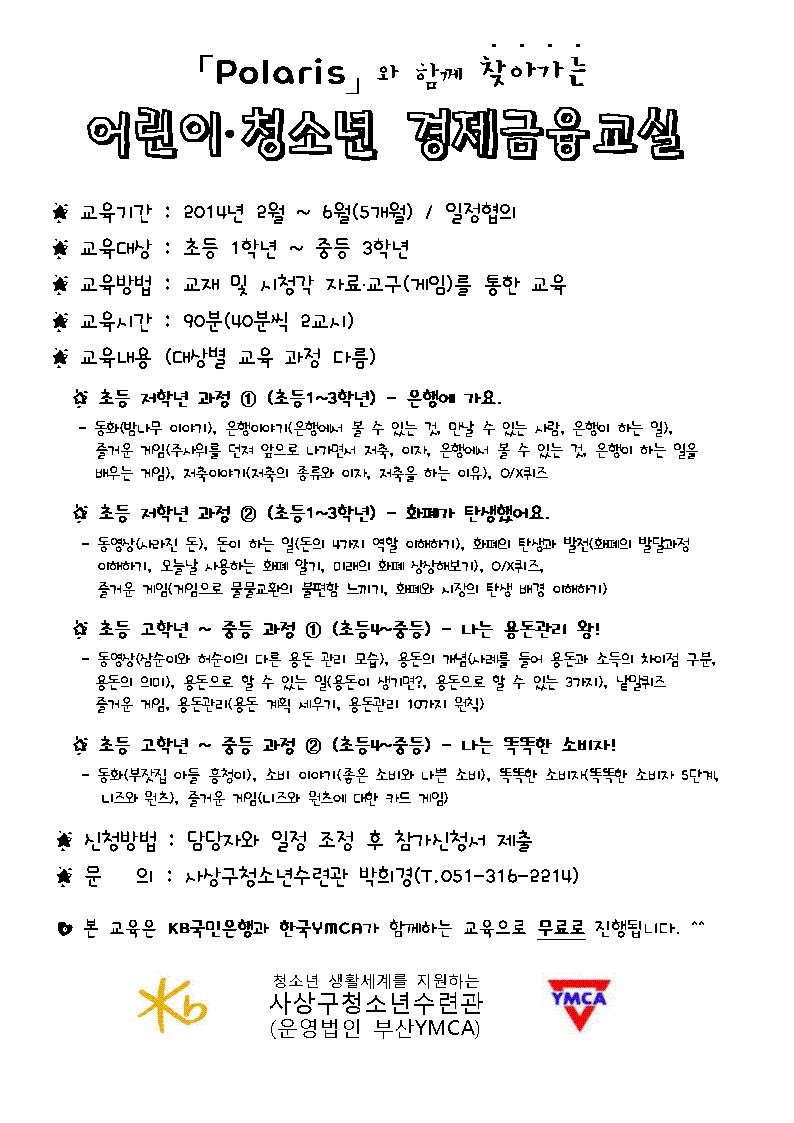 「Polaris」와 함께 찾아가는
어린이·청소년 경제금융교실
교육기간 : 2014년 2월 ~ 6월(5개월) / 일정협의
교육대상 : 초등 1학년 ~ 중등 3학년
교육방법 : 교재 및 시청각 자료·교구(게임)를 통한 교육
교육시간 : 90분(40분씩 2교시)
교육내용 (대상별 교육 과정 다름)
초등 저학년 과정 ① (초등1~3학년) - 은행에 가요.
- 동화(밤나무 이야기), 은행이야기(은행에서 볼 수 있는 것, 만날 수 있는 사람, 은행이 하는 일),
즐거운 게임(주사위를 던져 앞으로 나가면서 저축, 이자, 은행에서 볼 수 있는 것, 은행이 하는 일을
배우는 게임), 저축이야기(저축의 종류와 이자, 저축을 하는 이유), O/X퀴즈
초등 저학년 과정 ② (초등1~3학년) - 화폐가 탄생했어요.
- 동영상(사라진 돈), 돈이 하는 일(돈의 4가지 역할 이해하기), 화폐의 탄생과 발전(화폐의 발달과정
이해하기, 오늘날 사용하는 화폐 알기, 미래의 화폐 상상해보기), O/X퀴즈,
즐거운 게임(게임으로 물물교환의 불편함 느끼기, 화폐와 시장의 탄생 배경 이해하기)
초등 고학년 ~ 중등 과정 ① (초등4~중등) - 나는 용돈관리 왕!
- 동영상(삼순이와 허순이의 다른 용돈 관리 모습), 용돈의 개념(사례를 들어 용돈과 소득의 차이점 구분,
용돈의 의미), 용돈으로 할 수 있는 일(용돈이 생기면?, 용돈으로 할 수 있는 3가지), 낱말퀴즈
즐거운 게임, 용돈관리(용돈 계획 세우기, 용돈관리 10가지 원칙)
초등 고학년 ~ 중등 과정 ② (초등4~중등) - 나는 똑똑한 소비자!
- 동화(부잣집 아들 흥청이), 소비 이야기(좋은 소비와 나쁜 소비), 똑똑한 소비자(똑똑한 소비자 5단계,
니즈와 원츠), 즐거운 게임(니즈와 원츠에 대한 카드 게임)
신청방법 : 담당자와 일정 조정 후 참가신청서 제출
문 의 : 사상구청소년수련관 박희경(T.051-316-2214)
본 교육은 KB국민은행과 한국YMCA가 함께하는 교육으로 무료로 진행됩니다. ^^
청소년 생활세계를 지원하는
사상구청소년수련관
(운영법인 부산YMCA)
Kb
YMCA